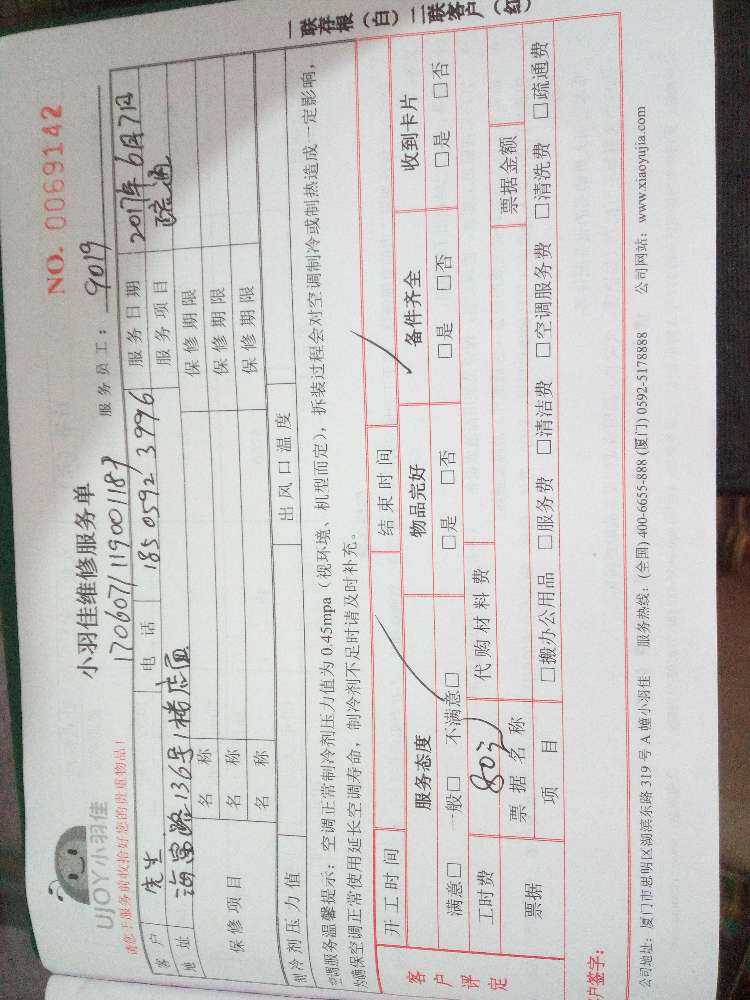 一联存根（白）二联客户（红）
UJOY小羽佳
小羽佳维修服务单
NO. 0069142
请您于服务前收拾好您的贵重物品！
170607119001189
服务员工： 9019
客户 先生 电话 18505923996 服务日期 2017年6月7日
地址 海富路136号1楼店面 服务项目 疏通
保修项目 名称 保修期限
名称 保修期限
名称 保修期限
制冷剂压力值 出风口温度
空调服务温馨提示：空调正常制冷剂压力值为 0.45mpa（视环境、机型而定），拆装过程会对空调制冷或制热造成一定影响，
为确保空调正常使用延长空调寿命，制冷剂不足时请及时补充。
开工时间 结束时间
客户评定 服务态度 物品完好 备件齐全 收到卡片
满意□ 一般□ 不满意□ □是 □否 □是 □否 □是 □否
工时费 80元 代购材料费
票据 票据名称 票据金额
项目 □搬办公用品 □服务费 □清洁费 □空调服务费 □清洗费 □疏通费
户签字：
公司地址：厦门市思明区湖滨东路 319 号 A 幢小羽佳 服务热线：(全国) 400-6655-888 (厦门) 0592-5178888 公司网站：www.xiaoyujia.com